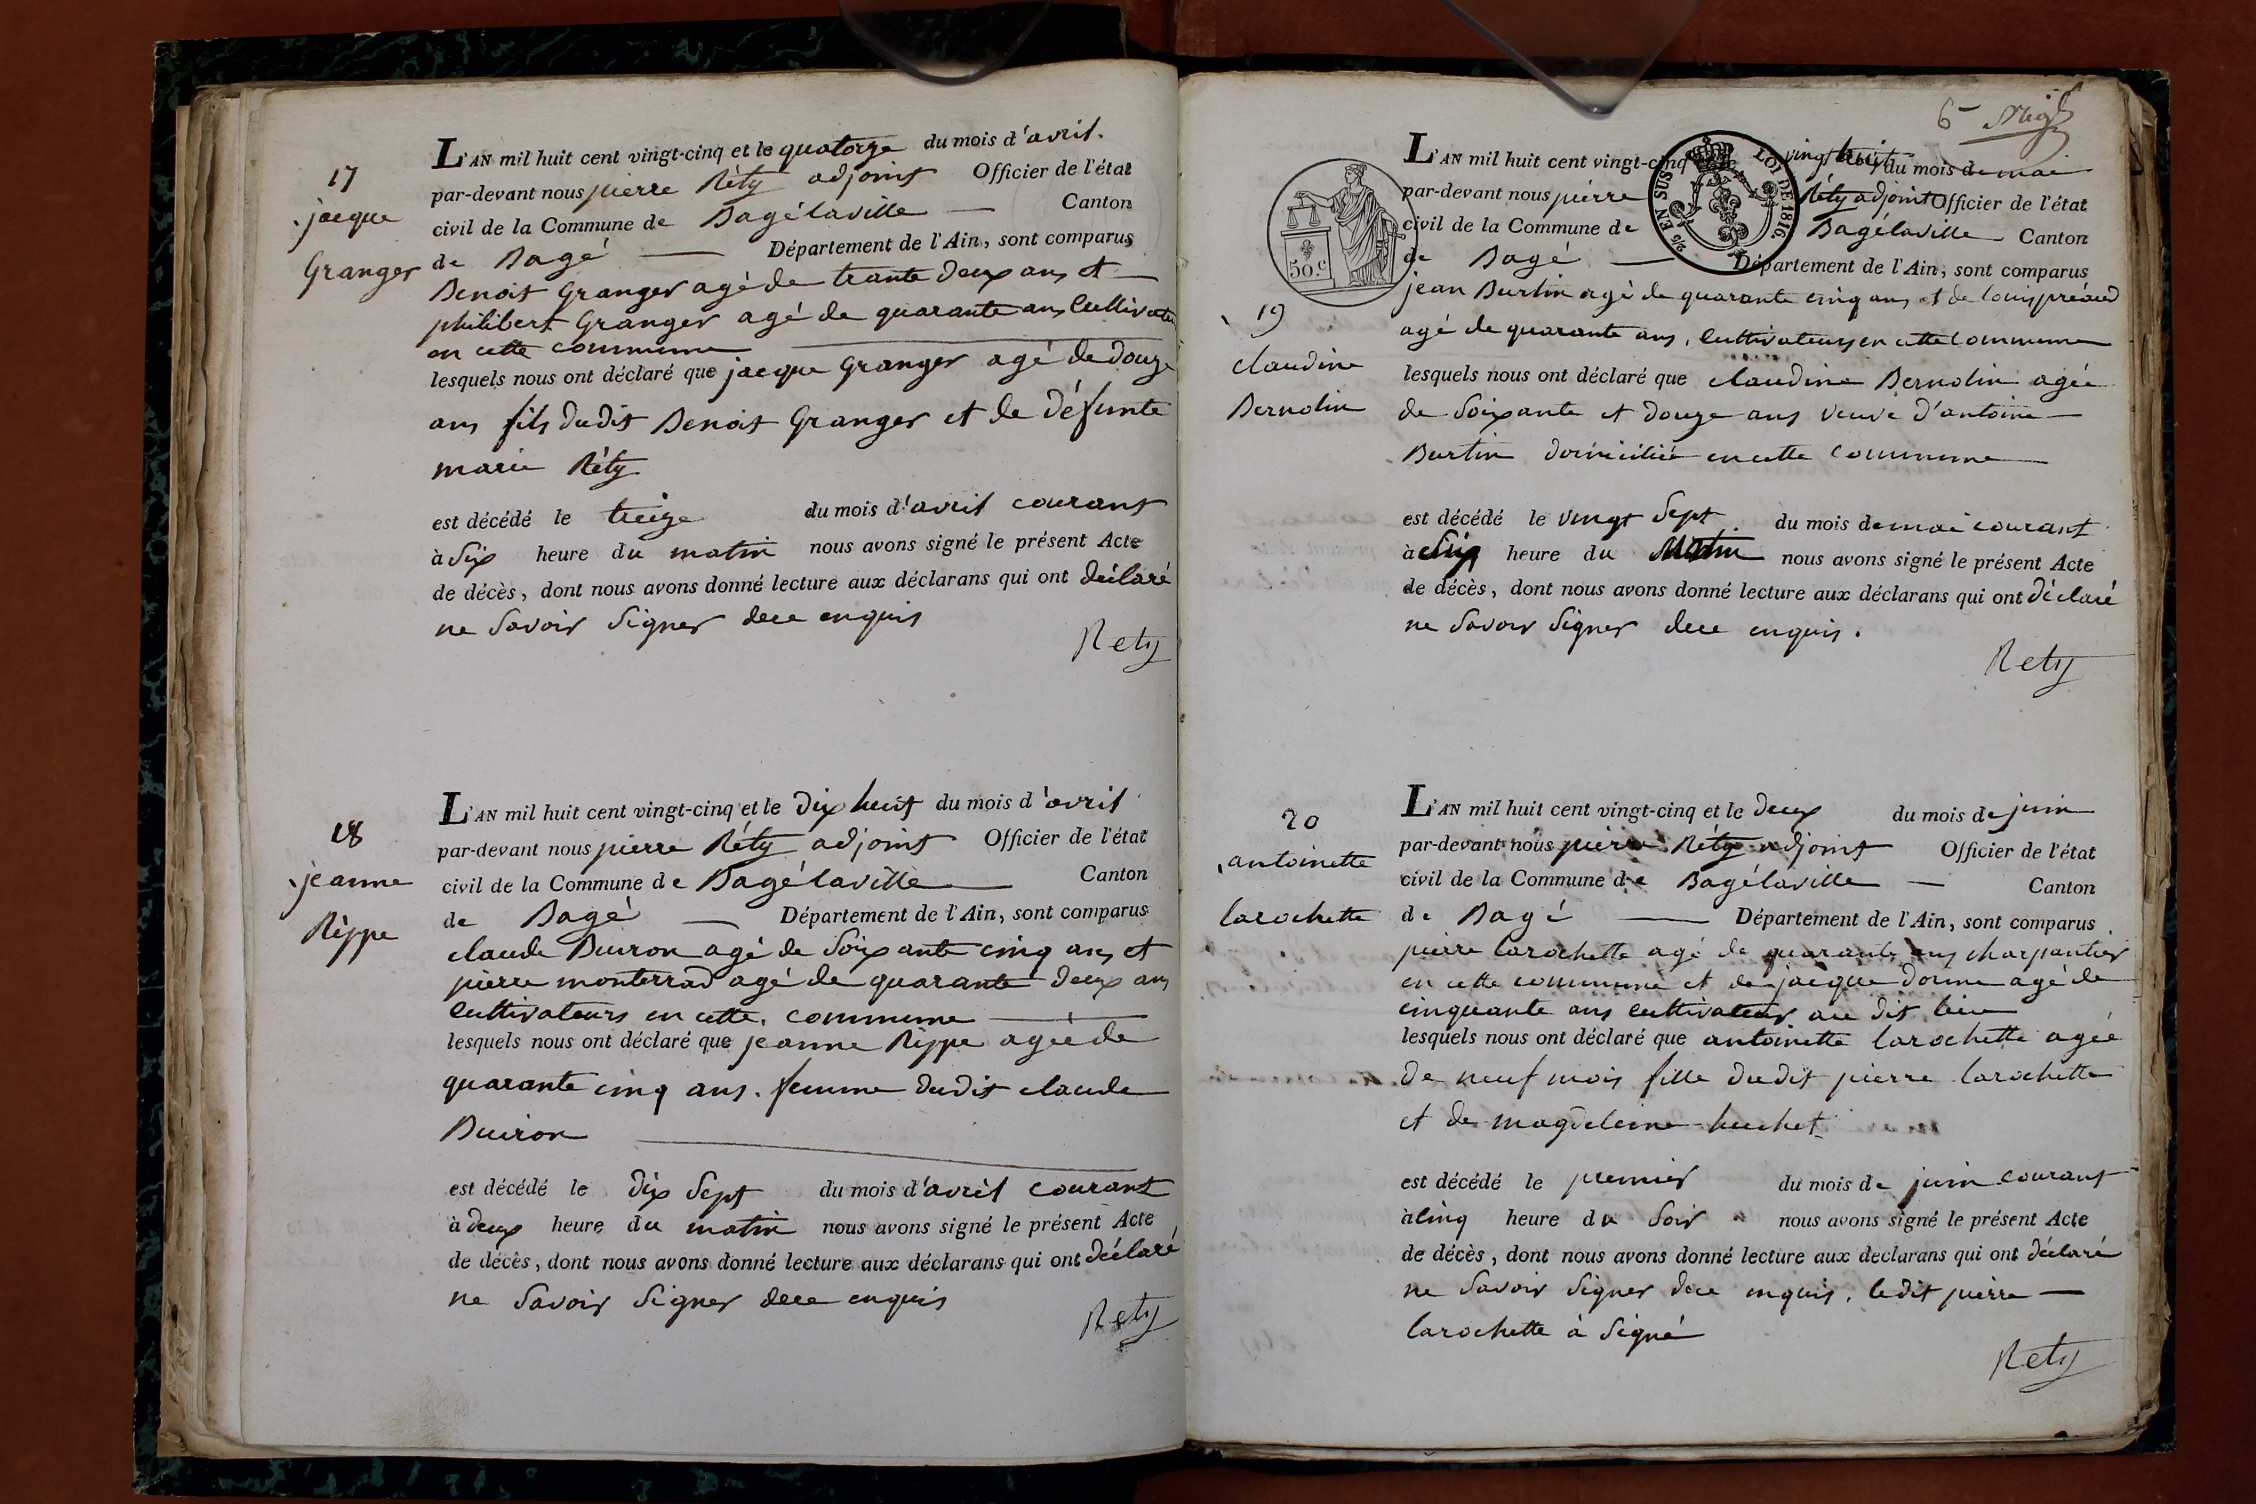 17
jacque
Granger
L'AN mil huit cent vingt-cinq et le quatorze du mois d'avril.
par-devant nous pierre Réty adjoint Officier de l'état
civil de la Commune de Bagélaville — Canton
de Bagé — Département de l'Ain, sont comparus
Benoit Granger agé de trante deux ans et
philibert Granger agé de quarante ans Cultivateurs
en cette commune
lesquels nous ont déclaré que jacque Granger agé de douze
ans fils dudit Benoit Granger et de défunte
marie Réty
est décédé le treize du mois d'avril courant
à Six heure du matin nous avons signé le présent Acte
de décès, dont nous avons donné lecture aux déclarans qui ont déclaré
ne Savoir Signer dece enquis
Rety
18
jeanne
Réppe
L'AN mil huit cent vingt-cinq et le dix huit du mois d'avril
par-devant nous pierre Réty adjoint Officier de l'état
civil de la Commune de Bagélaville — Canton
de Bagé — Département de l'Ain, sont comparus
claude Buiron agé de Soixante cinq ans et
pierre monterrad agé de quarante deux ans
Cultivateurs en cette commune
lesquels nous ont déclaré que jeanne Réppe agée de
quarante cinq ans. femme dudit claude
Buiron
est décédé le dix Sept du mois d'avril courant
à deux heure du matin nous avons signé le présent Acte
de décès, dont nous avons donné lecture aux déclarans qui ont déclaré
ne Savoir Signer dece enquis
Rety
6
EN SUS LOI DE 1816.
50.c
19
claudine
Bernolin
L'AN mil huit cent vingt-cinq vingt huit du mois de mai
par-devant nous pierre Réty adjoint Officier de l'état
civil de la Commune de Bagélaville Canton
de Bagé — Département de l'Ain, sont comparus
jean Burtin agé de quarante cinq ans et de louis préaud
agé de quarante ans, Cultivateurs en cette Commune
lesquels nous ont déclaré que claudine Bernolin agée
de Soixante et douze ans veuve d'antoine
Burtin domiciliée en cette Commune
est décédé le vingt Sept du mois de mai courant
à Six heure du Matin nous avons signé le présent Acte
de décès, dont nous avons donné lecture aux déclarans qui ont déclaré
ne Savoir Signer dece enquis.
Rety
20
antoinette
larochette
L'AN mil huit cent vingt-cinq et le deux du mois de juin
par-devant nous pierre Réty adjoint Officier de l'état
civil de la Commune de Bagélaville — Canton
de Bagé — Département de l'Ain, sont comparus
pierre larochette agé de quarante ans charpantier
en cette commune et de jacque Donne agé de
cinquante ans Cultivateur au dit lieu
lesquels nous ont déclaré que antoinette larochette agée
de neuf mois fille dudit pierre larochette
et de magdeleine huchet
est décédé le premier du mois de juin courant
à Cinq heure du Soir nous avons signé le présent Acte
de décès, dont nous avons donné lecture aux declarans qui ont déclaré
ne Savoir Signer dece enquis, ledit pierre —
larochette à Signé
Rety